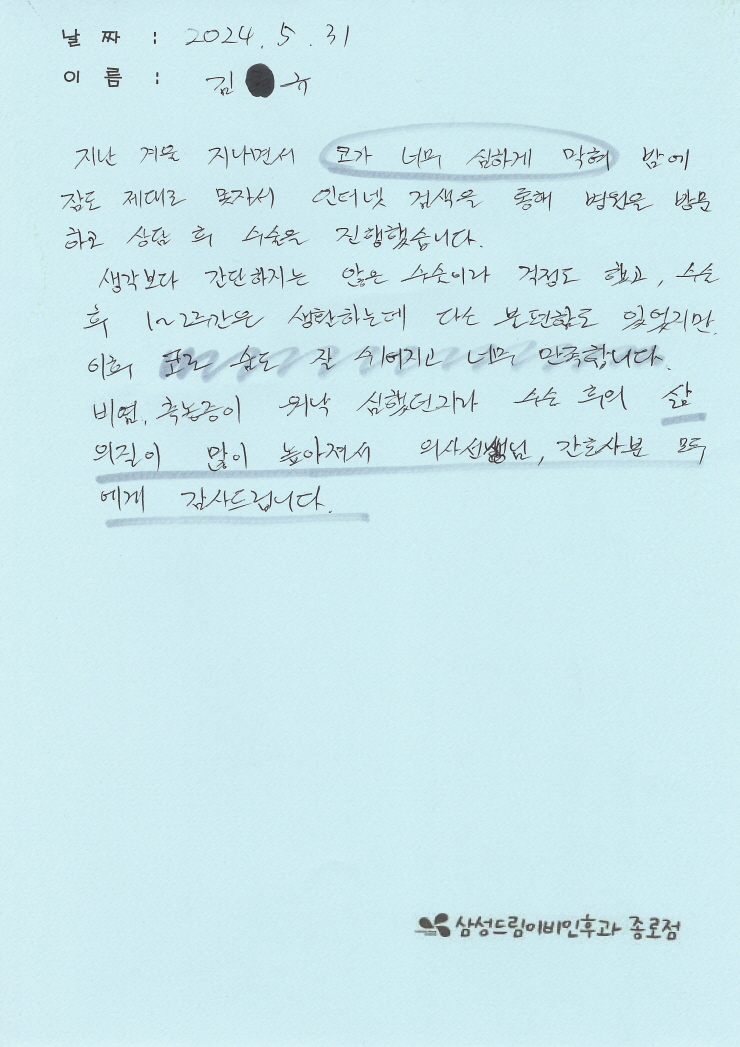 날 짜 : 2024. 5. 31
이 름 : 김 규
지난 겨울 지나면서 코가 너무 심하게 막혀 밤에
잠도 제대로 못자서 인터넷 검색을 통해 병원을 방문
하고 상담 후 수술을 진행했습니다.
생각보다 간단하지는 않은 수술이라 걱정도 했고, 수술
후 1~2주간은 생활하는데 다소 불편함도 있었지만,
이후 코로 숨도 잘 쉬어지고 너무 만족합니다.
비염, 축농증이 워낙 심했던지라 수술 후의 삶
의질이 많이 높아져서 의사선생님, 간호사분 모두
에게 감사드립니다.
삼성드림이비인후과 종로점